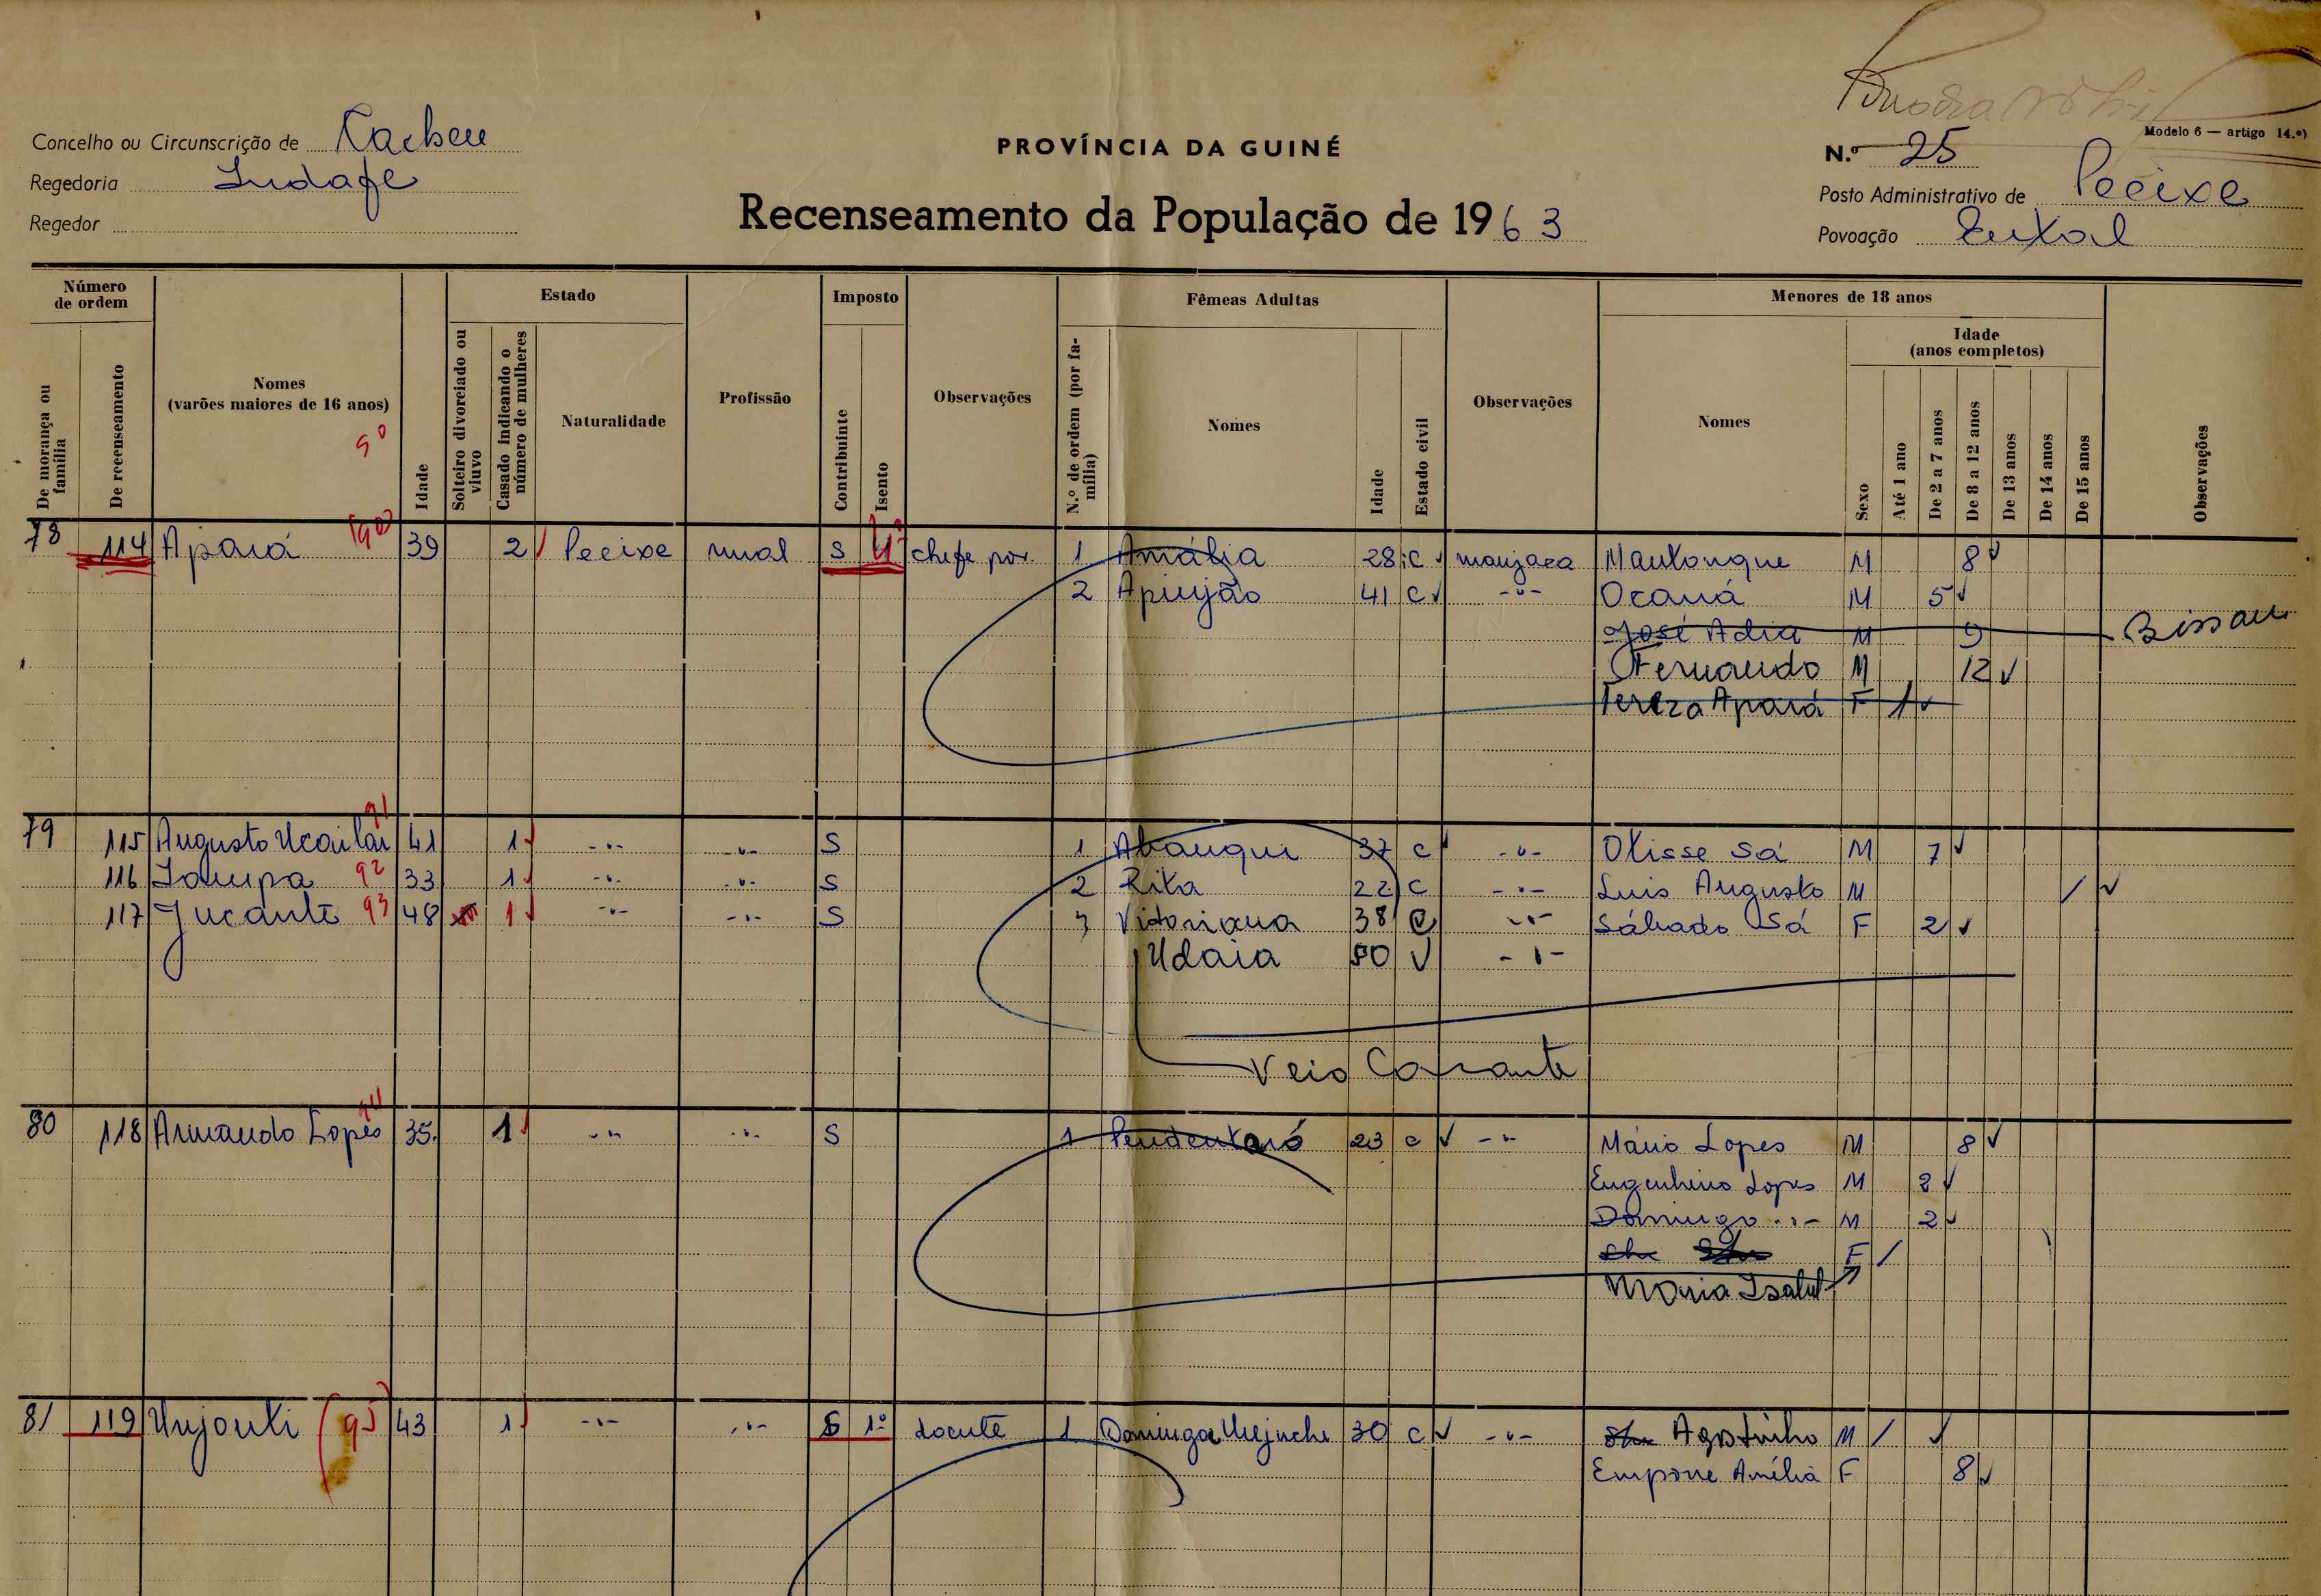 Modelo 6 — artigo 14.º)
Concelho ou Circunscrição de Cacheu
PROVÍNCIA DA GUINÉ
N.º 25
Regedoria Indafe
Posto Administrativo de Pecixe
Regedor
Recenseamento da População de 1963
Povoação
Número de ordem
Estado
Imposto
Fêmeas Adultas
Menores de 18 anos
De morança ou família
De recenseamento
Nomes (varões maiores de 16 anos)
Idade
Solteiro divorciado ou viuvo
Casado indicando o número de mulheres
Naturalidade
Profissão
Contribuinte
Isento
Observações
N.º de ordem (por família)
Nomes
Idade
Estado civil
Observações
Nomes
Sexo
Idade (anos completos)
Até 1 ano
De 2 a 7 anos
De 8 a 12 anos
De 13 anos
De 14 anos
De 15 anos
Observações
90
78 114 Apará 90 39 2 Pecixe rural S chefe pov. 1 Amália 28 C manjaca Mantonque M 8
2 Apinjão 41 C -"- Ocaná M 5
José Adia M 9 Bissau
Fernando M 12
Tereza Apará F 1
79 115 Augusto 91 41 1 -"- -"- S 1 Abanqui 37 C -"- Olisse Sá M 7
116 Jampa 92 33 1 -"- -"- S 2 Rita 22 C -"- Luis Augusto M /
117 Jucanté 93 48 1 -"- -"- S 3 Vitoriana 38 C -"- Sábado Sá F 2
Udaia 50 V -"-
Veio
80 118 Armando Lopes 94 35 1 -"- -"- S 1 23 C -"- Mário Lopes M 8
Engenheiro Lopes M 2
Domingo -"- M 2
F /
Maria Isabel
81 119 Unjouti 95 43 1 -"- -"- S 1º doente 1 Dominga 30 C -"- Agostinho M /
Empone Amélia F 8